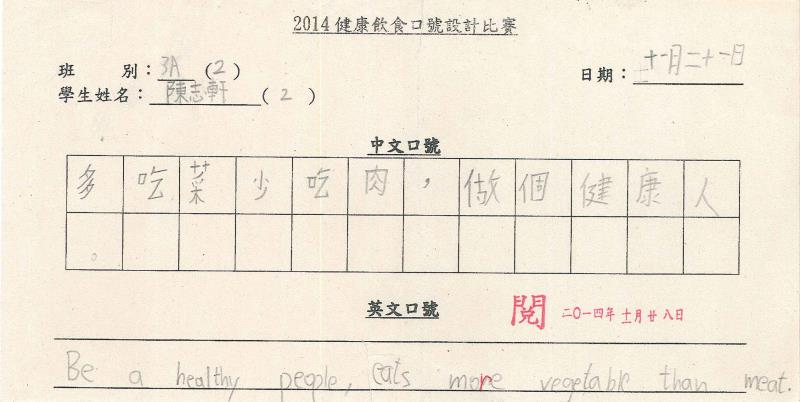 2014健康飲食口號設計比賽
班 別：3A (2)
日期：十一月二十一日
學生姓名：陳志軒 (2)
中文口號
多吃菜少吃肉，做個健康人
。
英文口號 閱 二〇一四年十一月廿八日
Be a healthy people, eats more vegetable than meat.